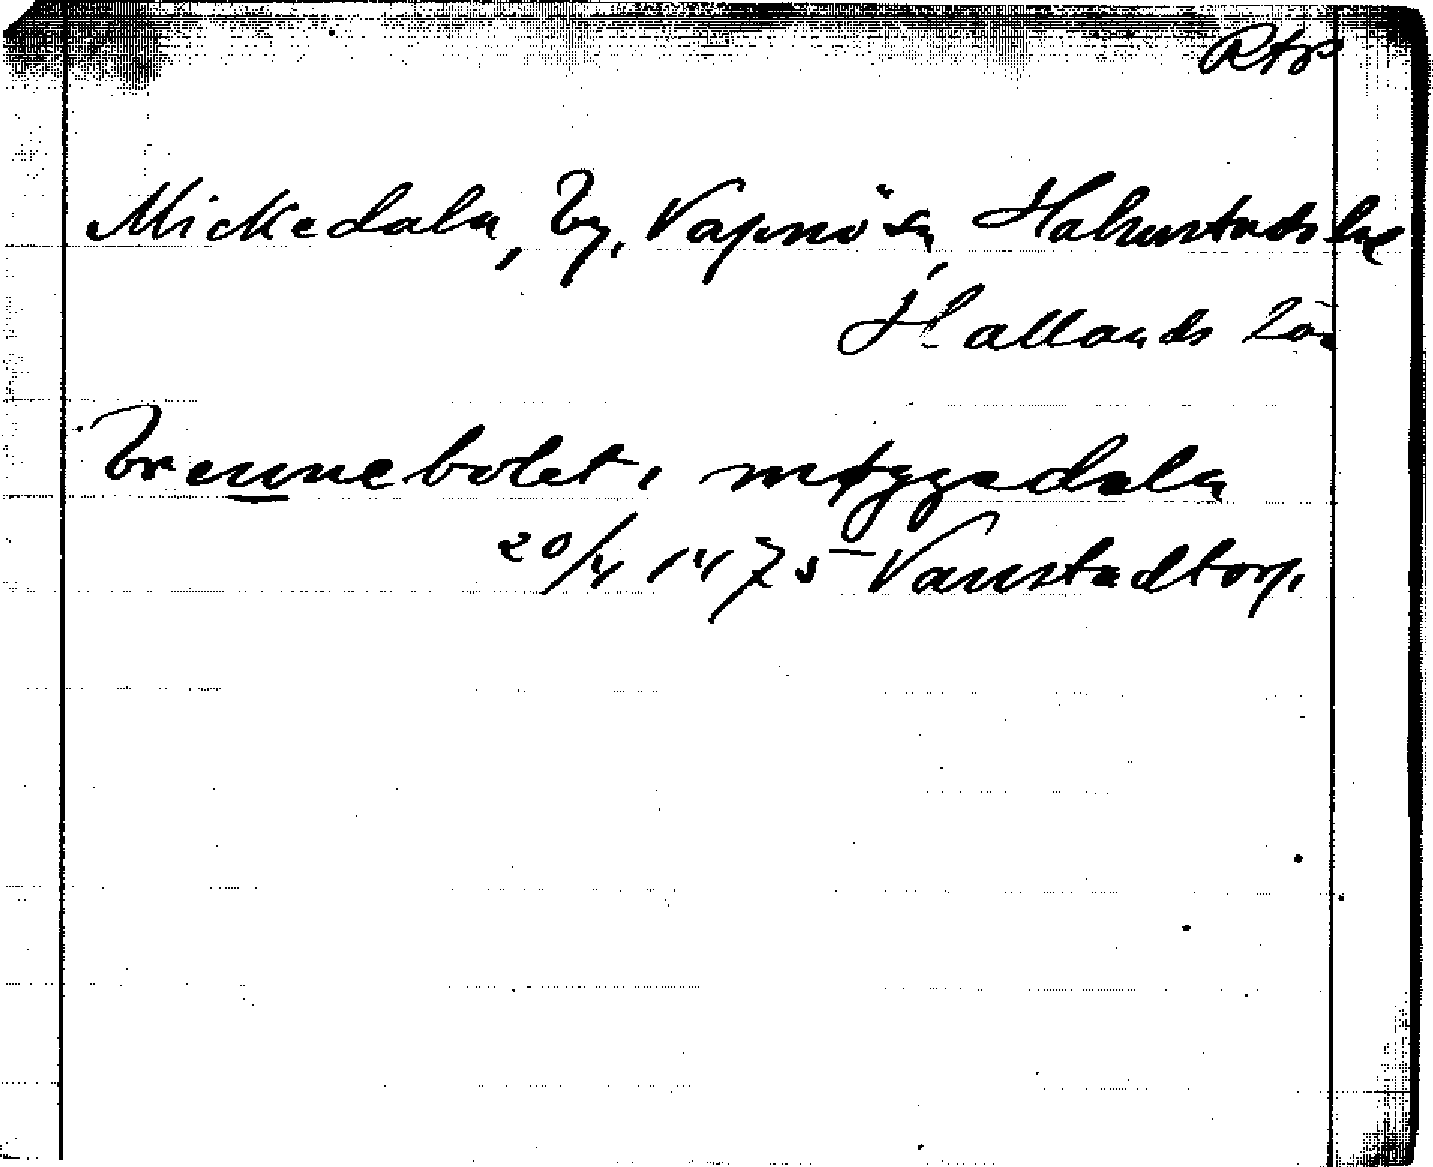 Rtp
Mickedala, By, Vapnö sn, Halmstads hd
Hallands län
Brennebolet i møggedala
20/4 1475 Vanstadtorp.